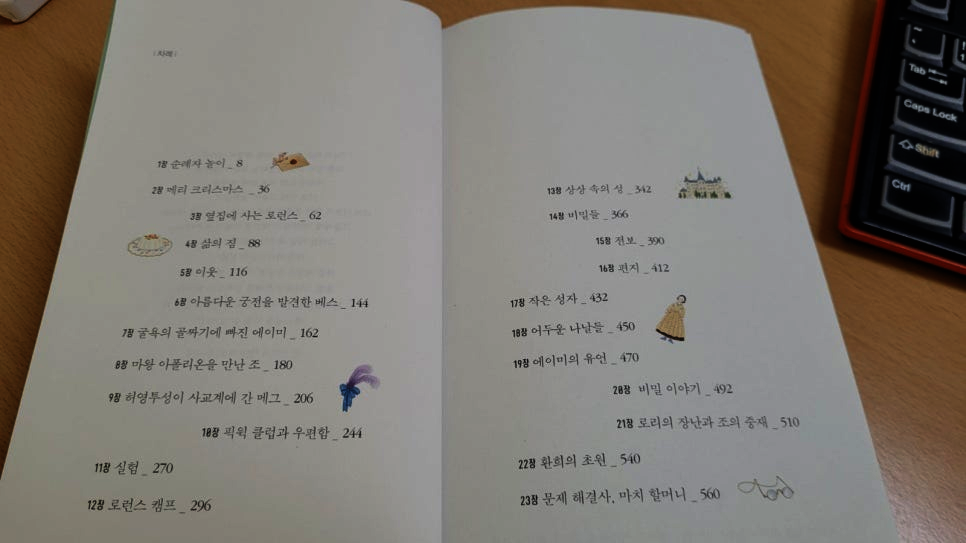 | 차례 |
1장 순례자 놀이 _ 8
2장 메리 크리스마스 _ 36
3장 옆집에 사는 로런스 _ 62
4장 삶의 짐 _ 88
5장 이웃 _ 116
6장 아름다운 궁전을 발견한 베스 _ 144
7장 굴욕의 골짜기에 빠진 에이미 _ 162
8장 마왕 아폴리온을 만난 조 _ 180
9장 허영투성이 사교계에 간 메그 _ 206
10장 픽윅 클럽과 우편함 _ 244
11장 실험 _ 270
12장 로런스 캠프 _ 296
13장 상상 속의 성 _ 342
14장 비밀들 _ 366
15장 전보 _ 390
16장 편지 _ 412
17장 작은 성자 _ 432
18장 어두운 나날들 _ 450
19장 에이미의 유언 _ 470
20장 비밀 이야기 _ 492
21장 로리의 장난과 조의 중재 _ 510
22장 환희의 초원 _ 540
23장 문제 해결사, 마치 할머니 _ 560
Tab
Caps Lock
Shift
Ctrl